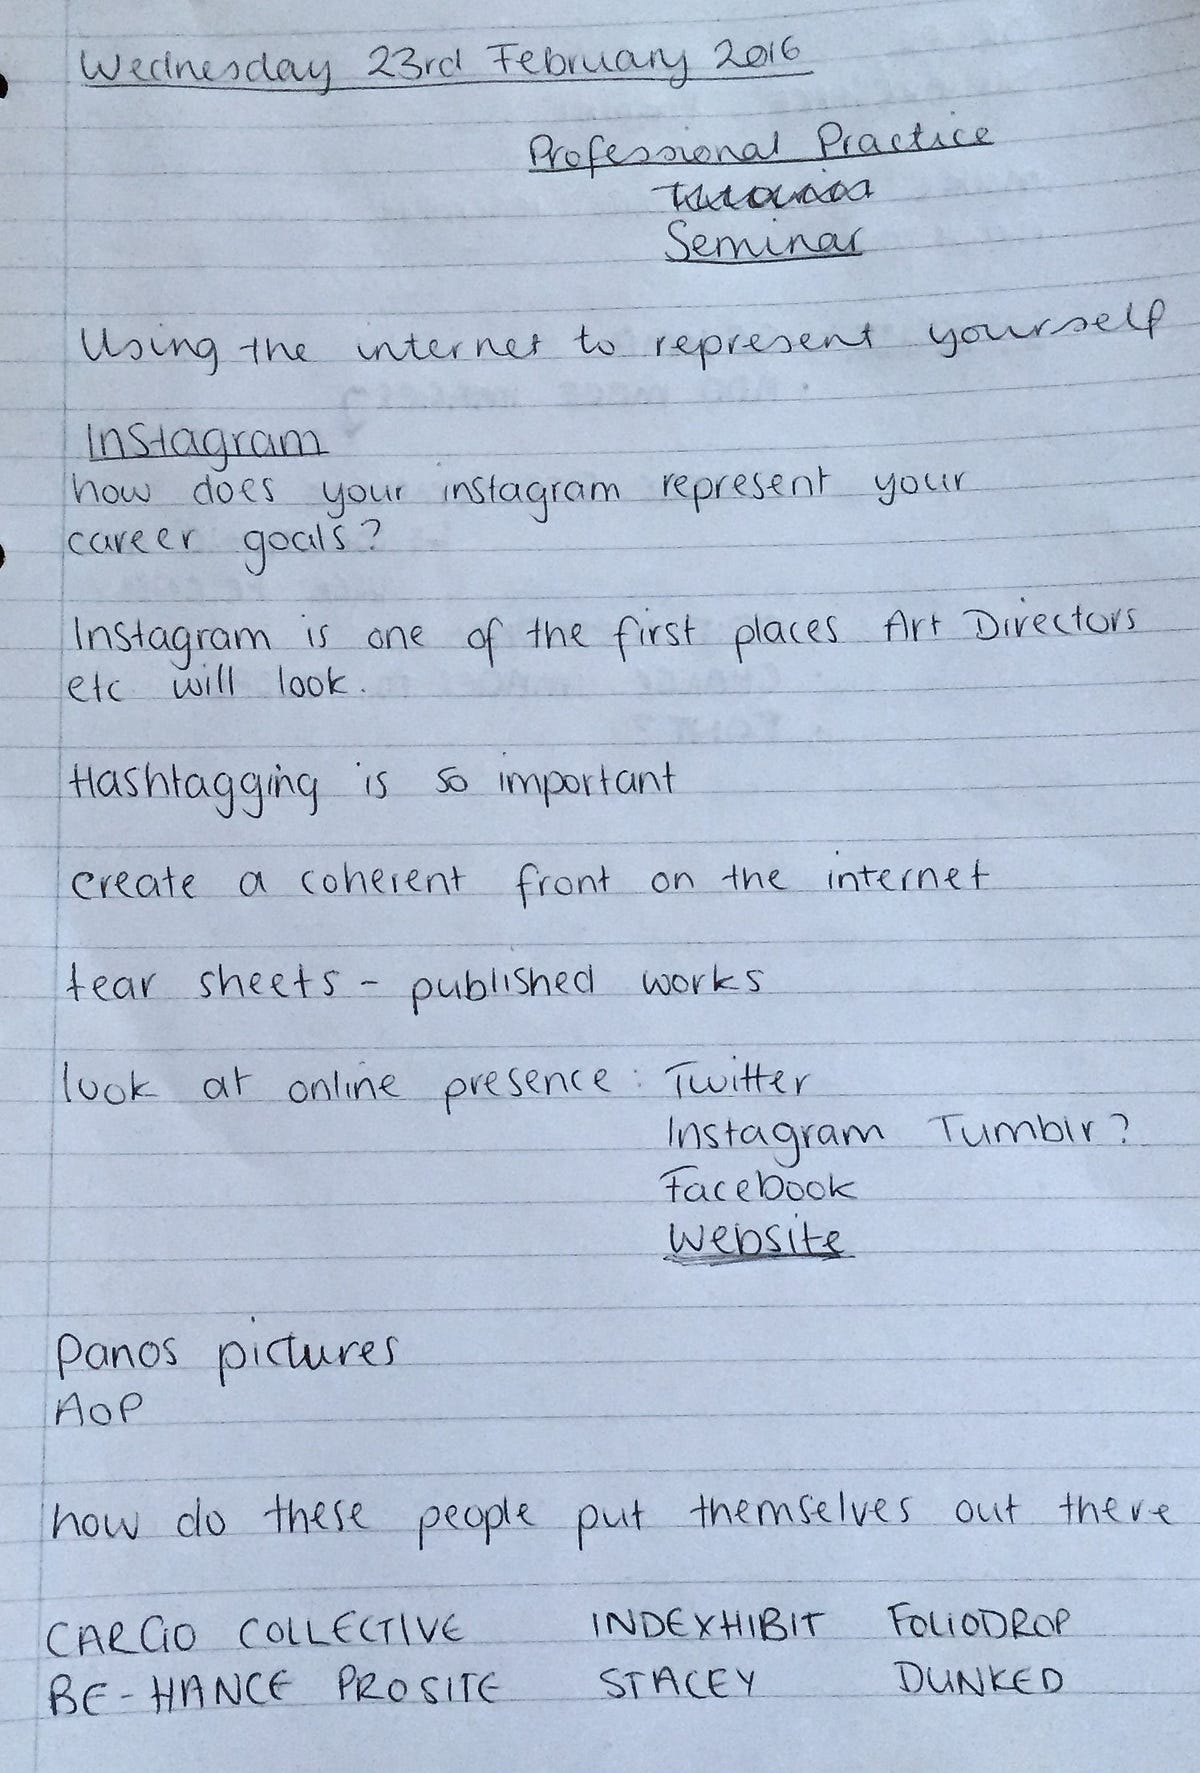 Wednesday 23rd February 2016
Professional Practice
Seminar
Using the internet to represent yourself
Instagram
how does your instagram represent your
career goals?
Instagram is one of the first places Art Directors
etc will look.
Hashtagging is so important
create a coherent front on the internet
tear sheets - published works
look at online presence: Twitter
Instagram Tumblr?
Facebook
Website
Panos pictures
AOP
how do these people put themselves out there
CARGO COLLECTIVE INDEXHIBIT FOLIODROP
BE-HANCE PROSITE STACEY DUNKED